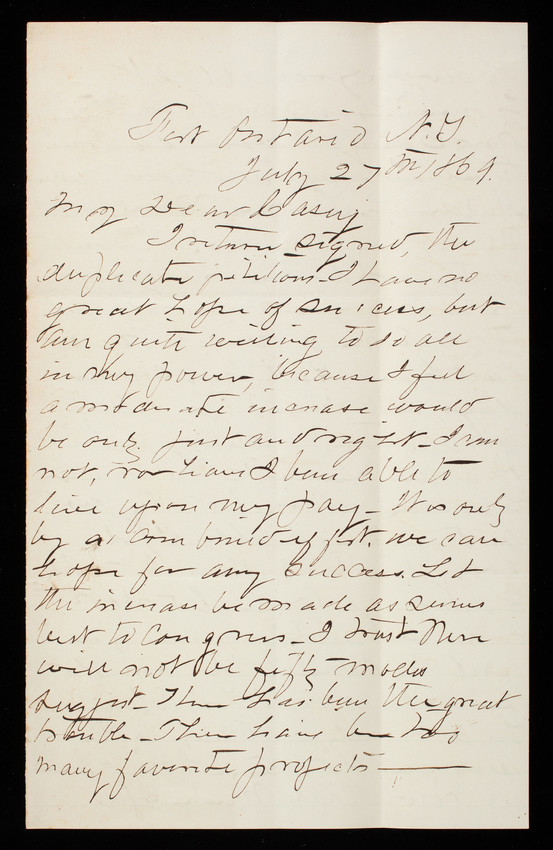 Fort Ontario N.Y.
July 27th 1869.
My Dear Casey
I return signed, the
duplicate petitions. I have no
great hope of success, but
am quite willing to do all
in my power, because I feel
a moderate increase would
be only just and right - I am
not, nor have I been able to
live upon my pay - It is only
by a combined effort, we can
hope for any success. Let
the increase be made as seems
best to Congress - I trust there
will not be fifty modes
suggest - There has been the great
trouble - There have been too
many favorite projects -